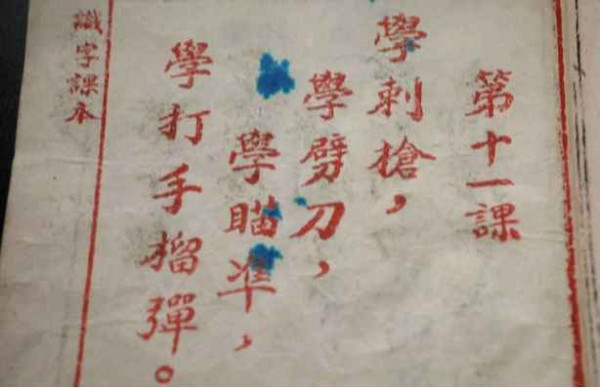 第十一課
學刺槍，
學劈刀，
學瞄準，
學打手榴彈。
識字課本